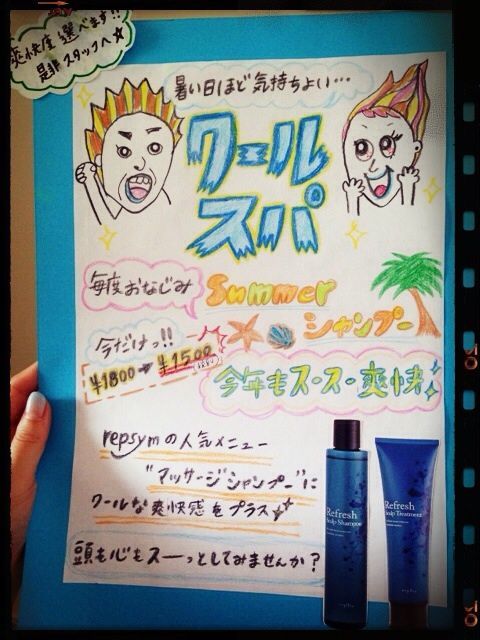 爽快度選べます!!
是非スタッフへ☆
暑い日ほど気持ちよい…
クール
スパ
毎度おなじみ
Summer
シャンプー
今だけっ!!
¥1800 → ¥1500
今年もスースー爽快
repsymの人気メニュー
"マッサージシャンプー"に
クールな爽快感をプラス
頭も心もスーっとしてみませんか?
Refresh
Scalp Shampoo
Refresh
Scalp Treatment